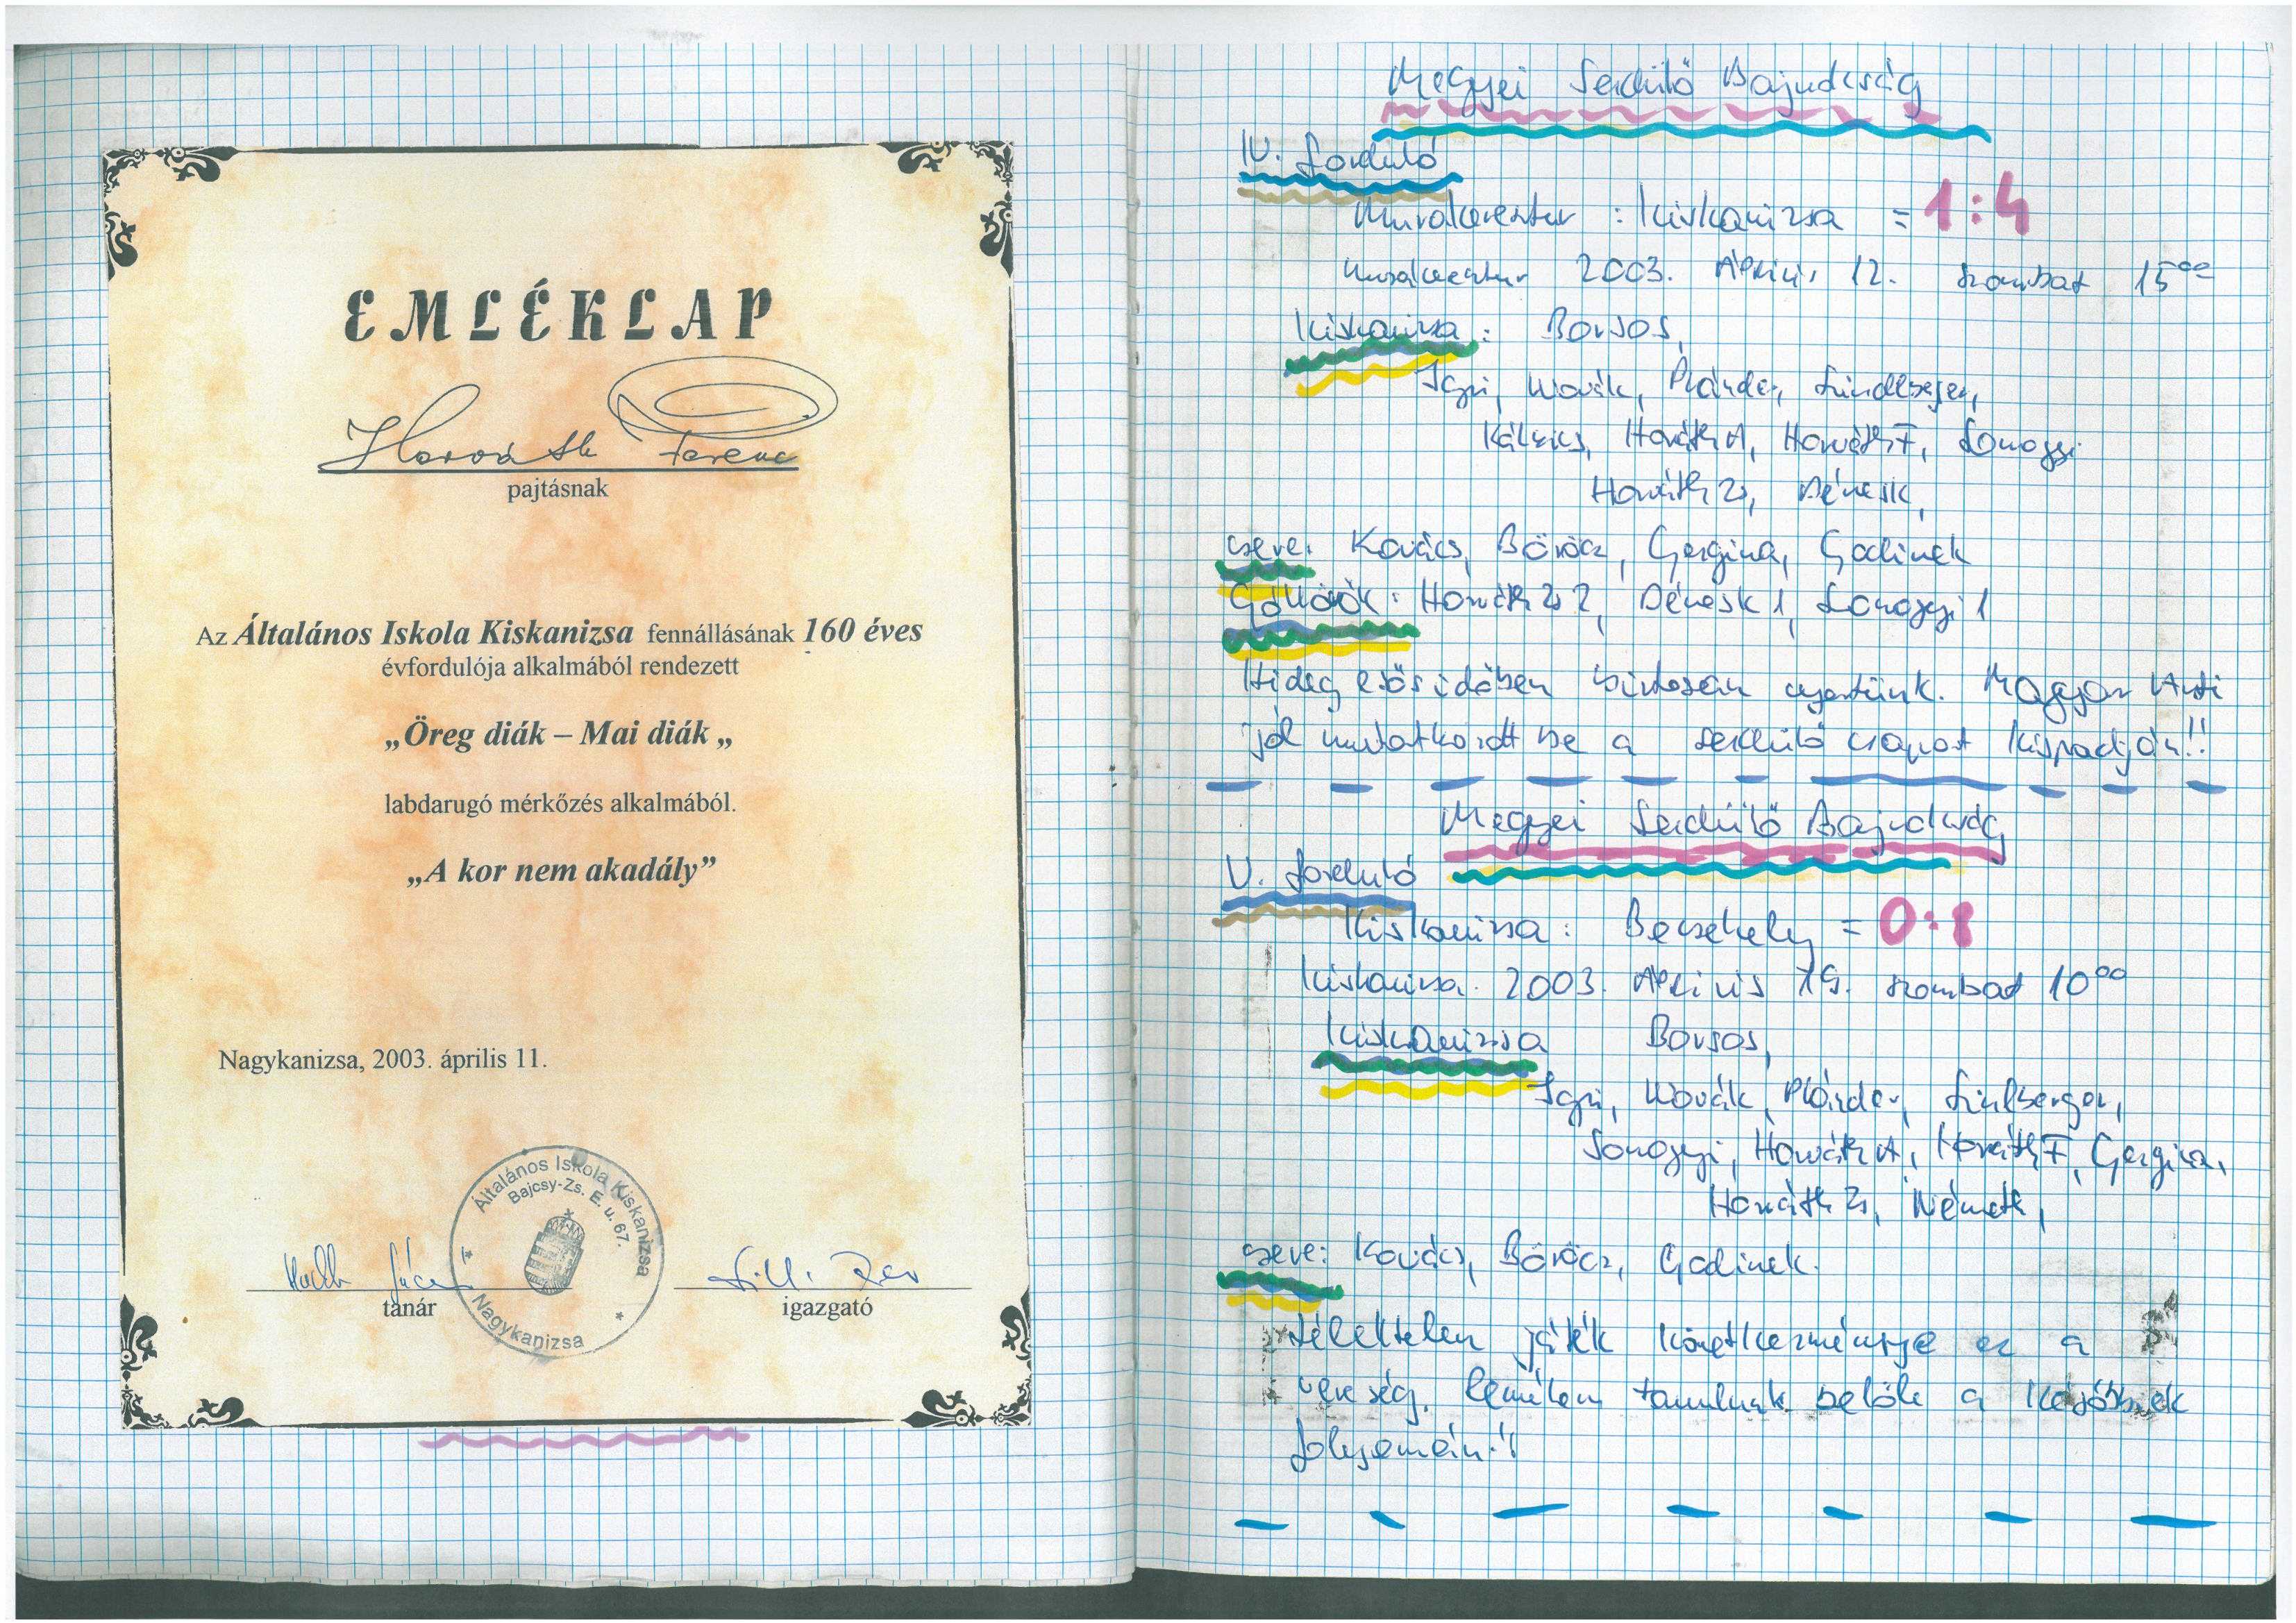 EMLÉKLAP
Horváth Ferenc
pajtásnak
Az Általános Iskola Kiskanizsa fennállásának 160 éves
évfordulója alkalmából rendezett
„Öreg diák – Mai diák „
labdarugó mérkőzés alkalmából.
„A kor nem akadály”
Nagykanizsa, 2003. április 11.
Általános Iskola Kiskanizsa
Bajcsy-Zs. E. u. 67.
Nagykanizsa
tanár
igazgató
Megyei Serdülő Bajnokság
IV. forduló
Murakeresztur : Kiskanizsa = 1:4
Murakeresztur 2003. Április 12. szombat 15⁰⁰
Kiskanizsa: Borsos,
Igri, Novák, Plánder,
Kálovics, Horváth A, Horváth F, Somogyi
Horváth Zs, Dénes K,
csere: Kovács, Böröcz, Gergina, Godinek
Góllövők: Horváth Zs 2, Dénes K 1, Somogyi 1
Hideg esős időben biztosan nyertünk. Magyar
jól mutatkozott be a serdülő csapat kispadján!!
Megyei Serdülő Bajnokság
V. forduló
Kiskanizsa: Becsehely = 0:8
Kiskanizsa. 2003. Április 19. szombat 10⁰⁰
Kiskanizsa Borsos,
Igri, Novák, Plánder,
Somogyi, Horváth A, Horváth F, Gergina,
Horváth Zs, Németh,
csere: Kovács, Böröcz, Godinek.
Lélektelen játék következménye ez a
vereség. Remélem tanulnak belőle a későbbiek
folyamán!